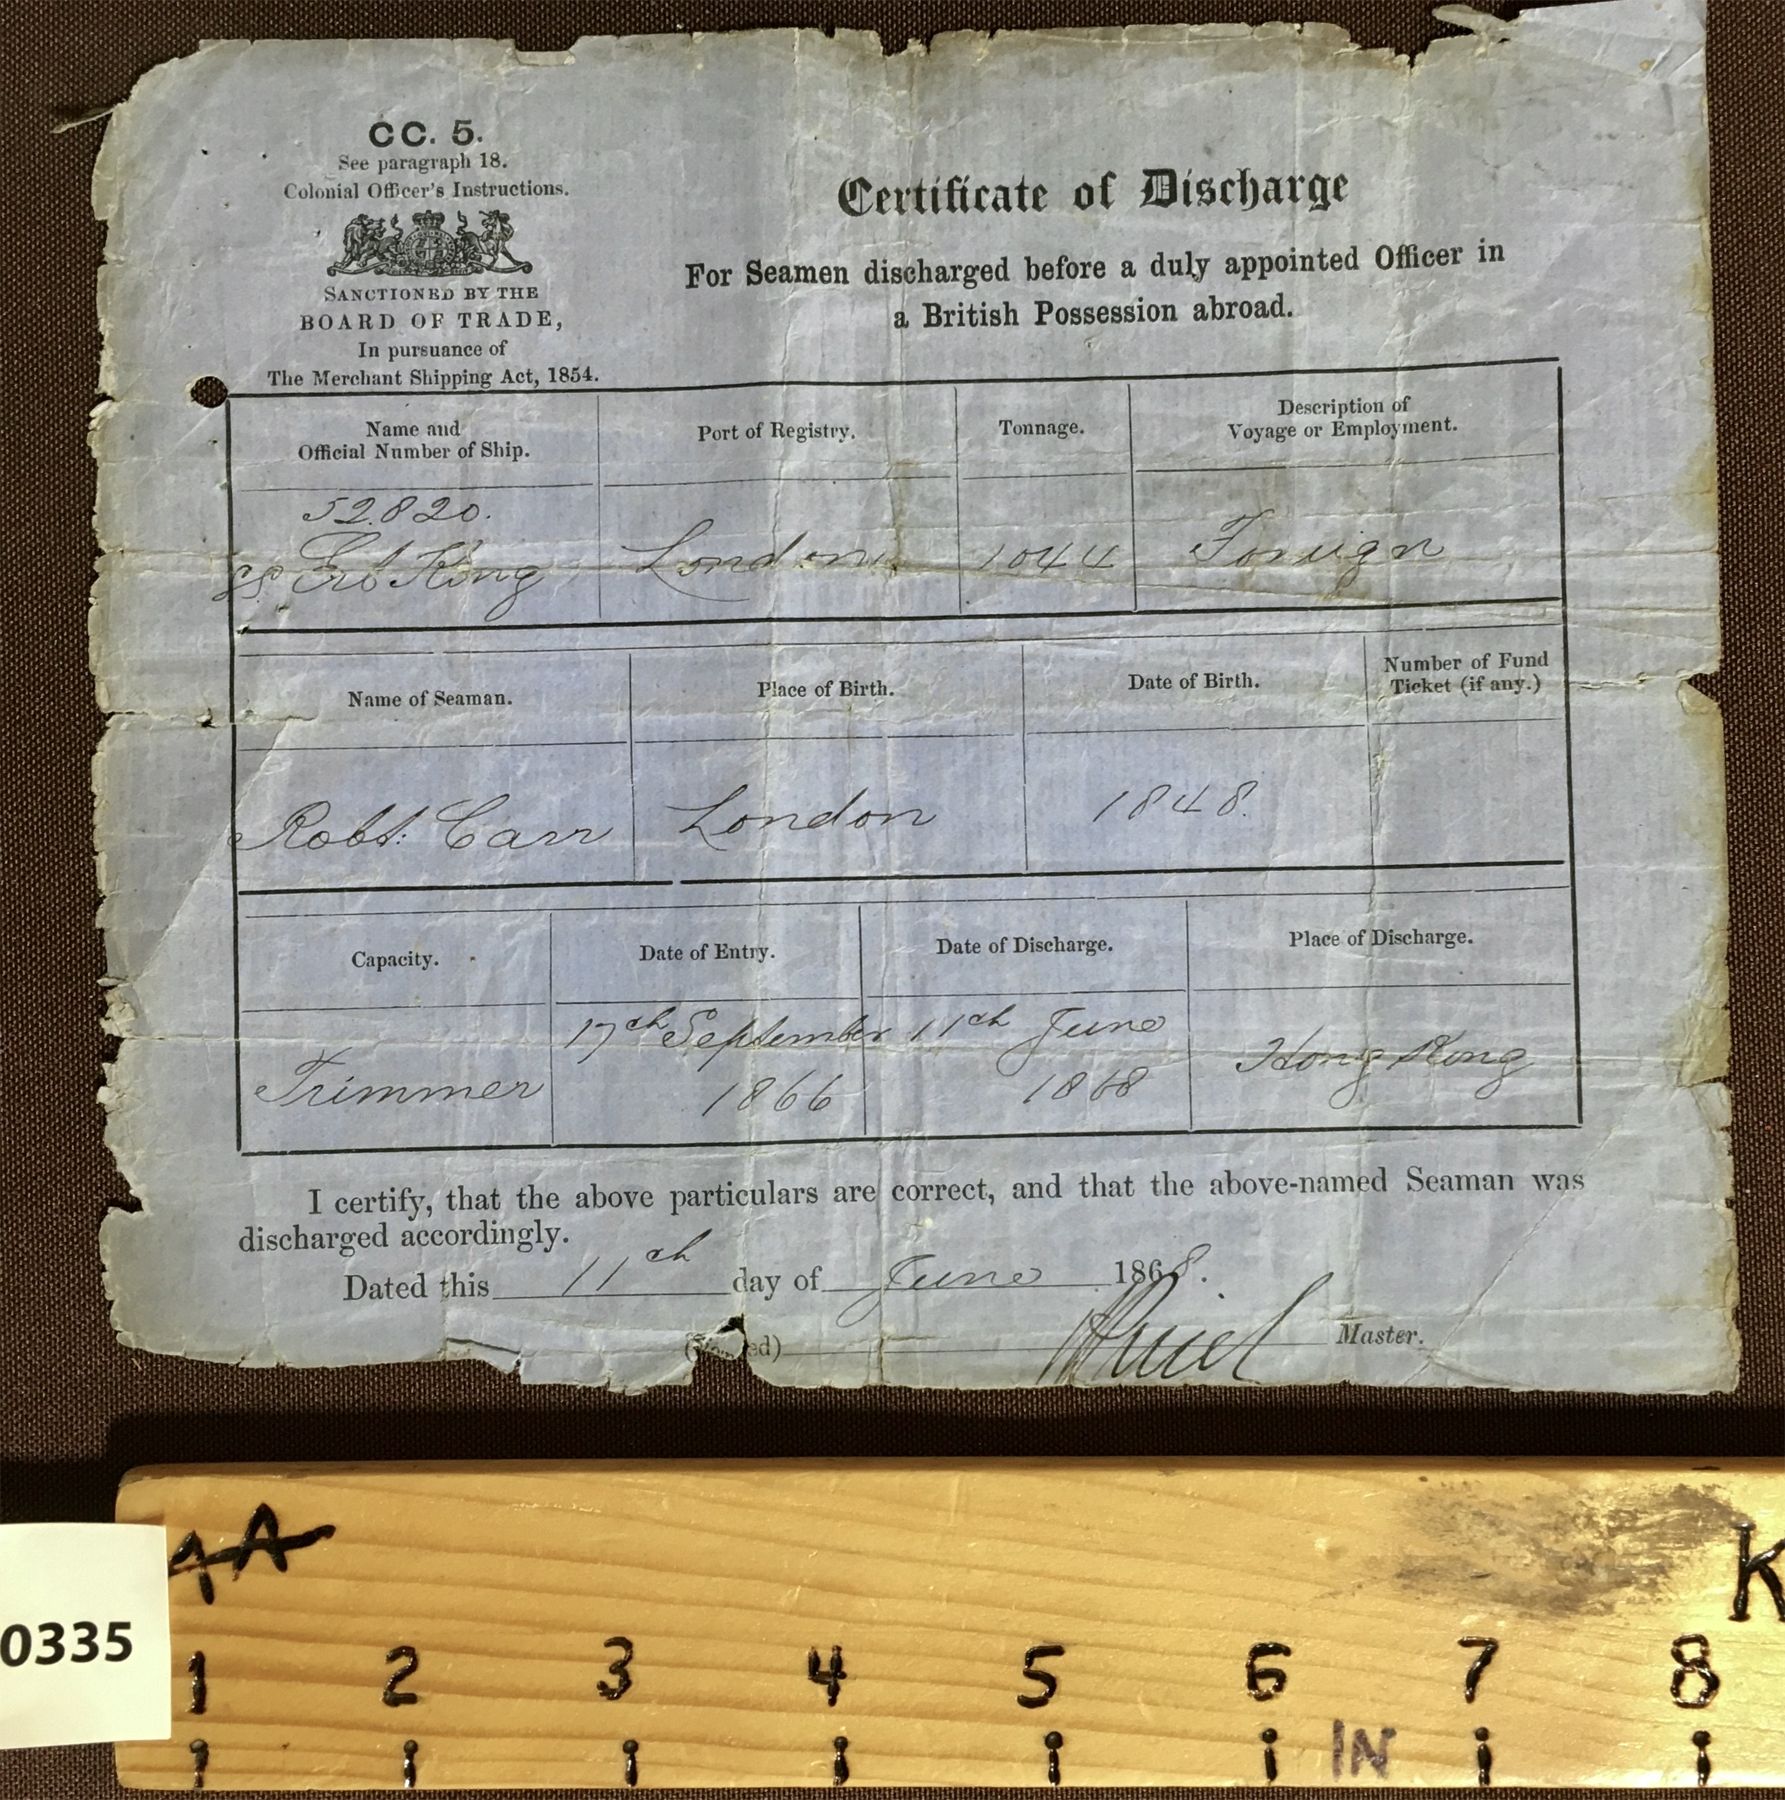 CC. 5.
See paragraph 18.
Colonial Officer's Instructions.
SANCTIONED BY THE
BOARD OF TRADE,
In pursuance of
The Merchant Shipping Act, 1854.
Certificate of Discharge
For Seamen discharged before a duly appointed Officer in
a British Possession abroad.
Name and
Official Number of Ship.
Port of Registry.
Tonnage.
Description of
Voyage or Employment.
52.820.
SS Erl King
London
1044
Foreign
Name of Seaman.
Place of Birth.
Date of Birth.
Number of Fund
Ticket (if any.)
Robt. Carr
London
1848.
Capacity.
Date of Entry.
Date of Discharge.
Place of Discharge.
Trimmer
17th September
1866
11th June
1868
Hong Kong
I certify, that the above particulars are correct, and that the above-named Seaman was
discharged accordingly.
Dated this 11th day of June 1868.
Master.
0335
A
K
1 2 3 4 5 6 7 8
IN